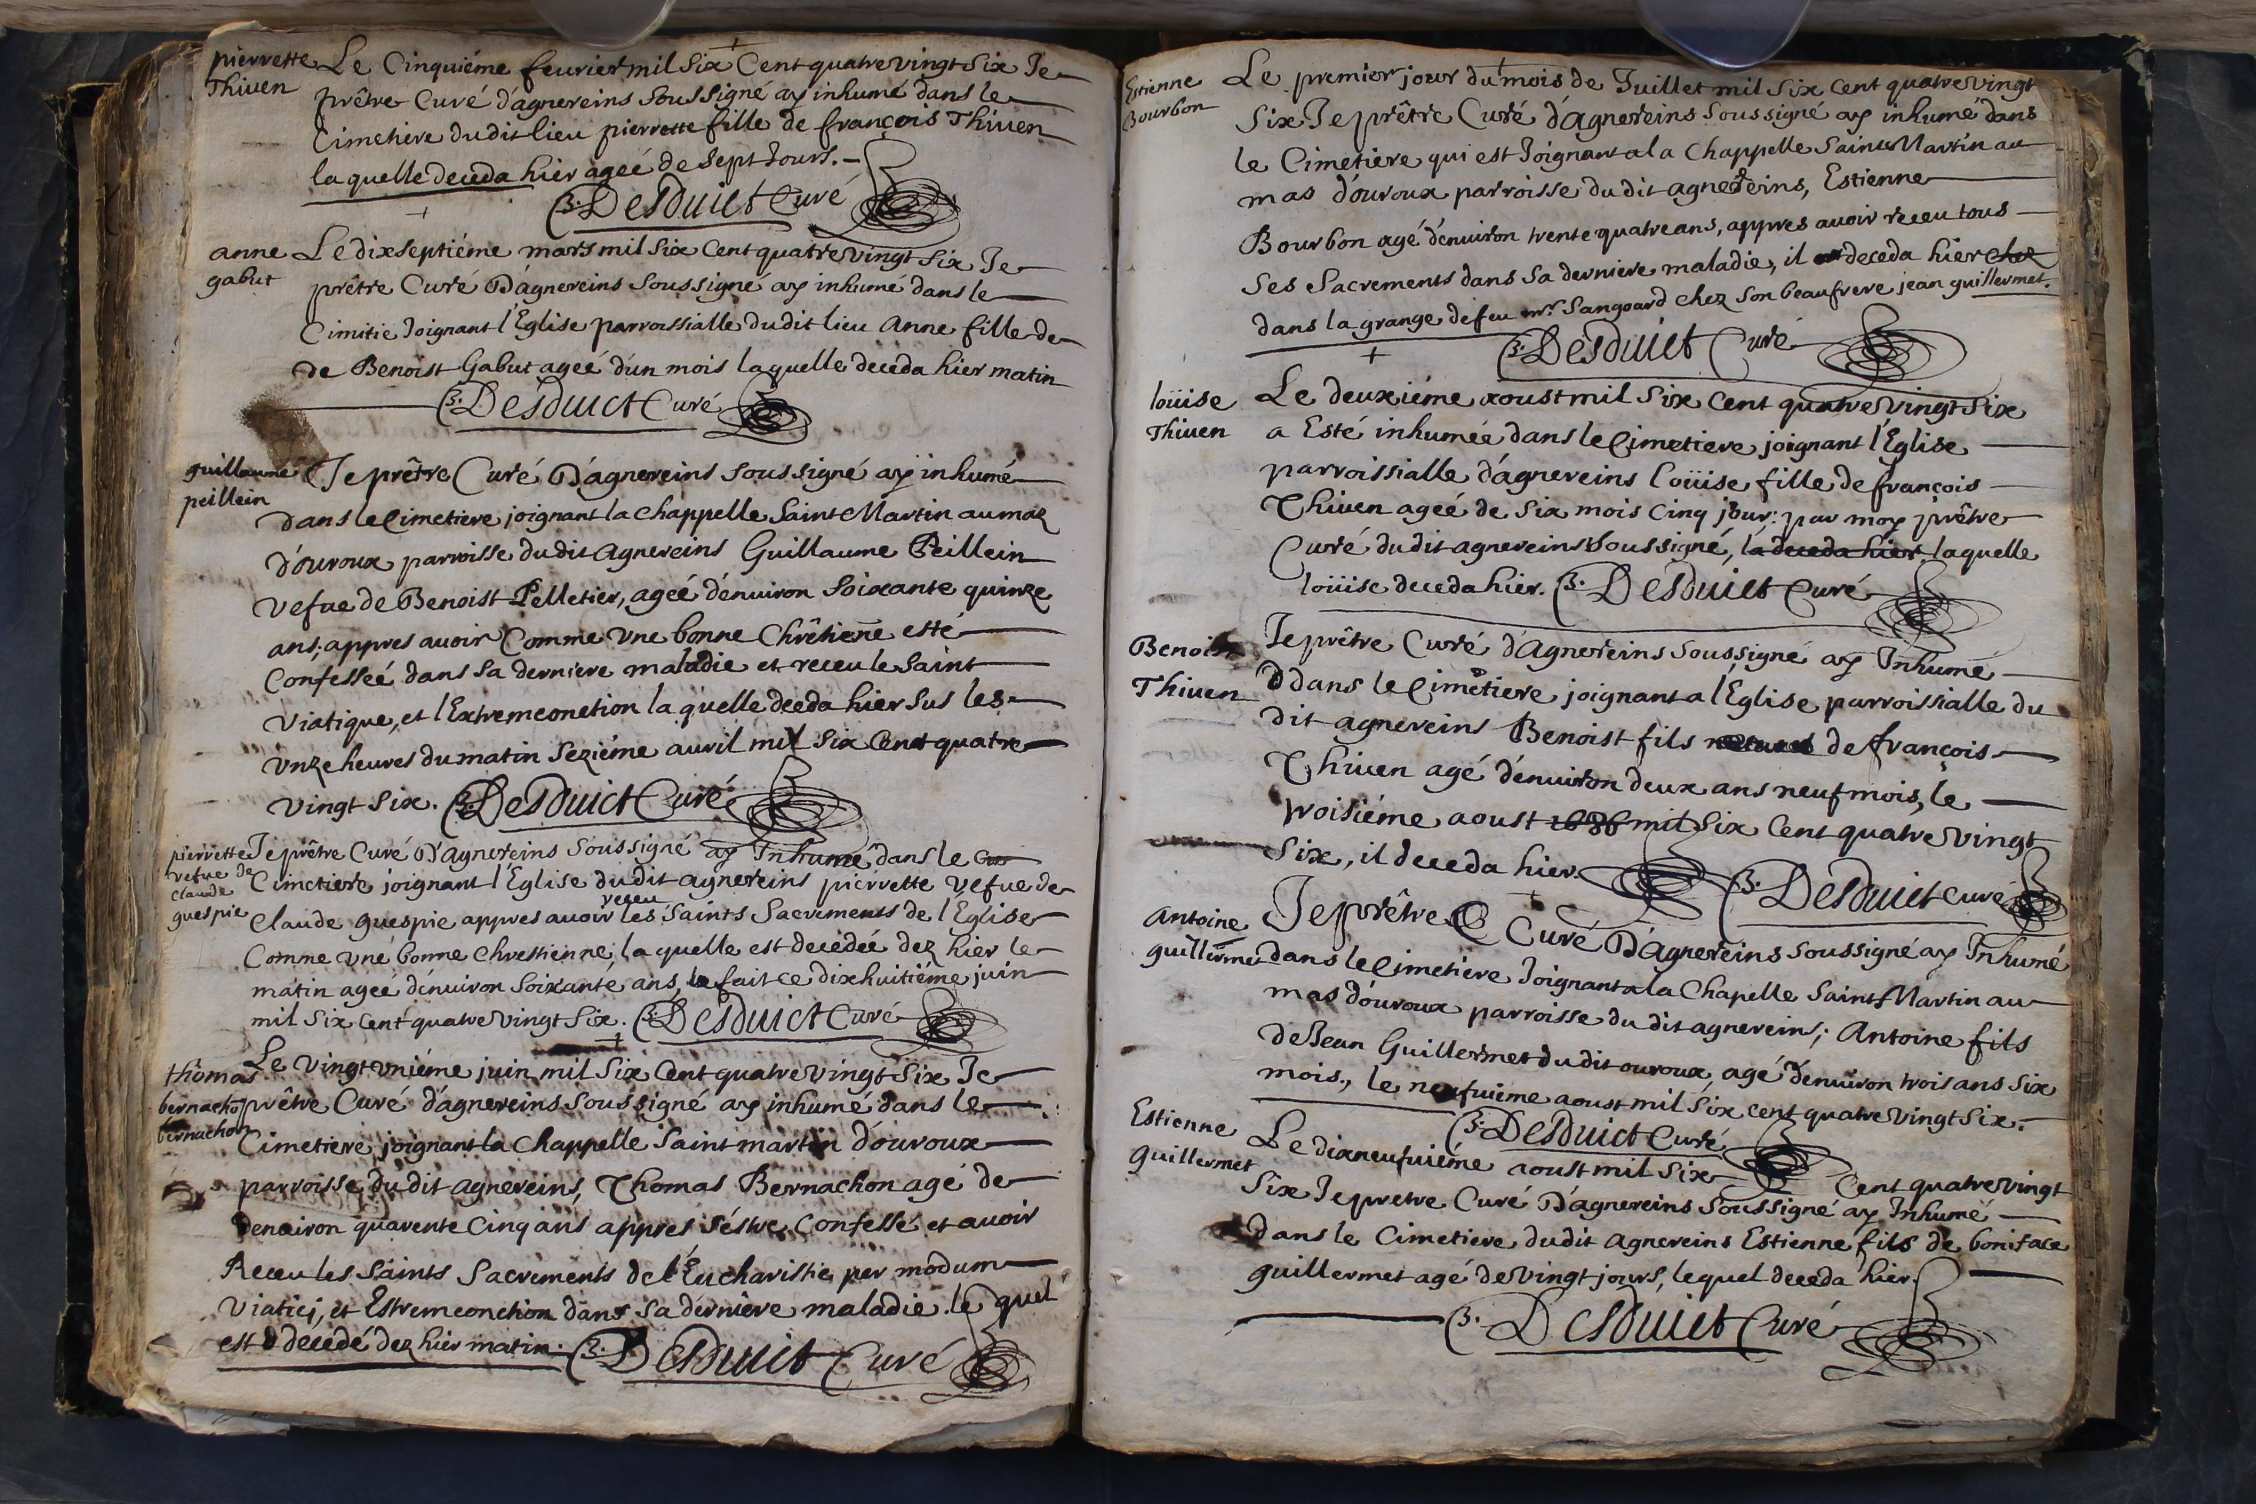 pierrette
Thiven
Le Cinquiéme feurier mil Six Cent quatre vingt Six Je
prêtre Curé d'agnereins Soussigné ay inhumé dans le
Cimetiere dudit lieu pierrette fille de françois Thiven
laquelle deceda hier ageé de Sept Jours.
B. Desduict Curé
anne
gabut
Le dixseptiéme mars mil Six Cent quatre vingt Six Je
prêtre Curé D'agnereins Soussigné ay inhumé dans le
Cimitie Joignant l'Eglise parroissialle dudit lieu Anne fille de
de Benoist Gabut ageé d'un mois laquelle deceda hier matin
B. Desduict Curé
guillaume
peillein
Je prêtre Curé D'agnereins Soussigné ay inhumé
dans le Cimetiere joignant la chappelle Saint Martin au maz
d'ouroux parroisse dudit Agnereins Guillaume Peillein
vefue de Benoist Pelletier, ageé d'enuiron Soixante quinze
ans; appres auoir Comme vne bonne Chrêtienne esté
Confesseé dans Sa derniere maladie et receu le Saint
Viatique, et l'Extremeonction la quelle deceda hier Sus les
vnze heures du matin Seziéme auril mil Six Cent quatre
vingt Six. B. Desduict Curé
pierrette
vefue de
claude
guespie
Je prêtre Curé D'agnereins Soussigné ay Inhumé dans le
Cimetiere joignant l'Eglise dudit agnereins pierrette vefue de
receu
Claude guespie appres auoir les Saints Sacrements de l'Eglise
Comme vne bonne Chrestienne, la quelle est decedeé dez hier le
matin ageé d'enuiron Soixante ans, fait ce dixhuitiéme juin
mil Six Cent quatre vingt Six. B. Desduict Curé
thomas
bernacho
bernachon
Le vingt vniéme juin mil Six Cent quatre vingt Six Je
prêtre Curé d'agnereins Soussigné ay inhumé dans le
Cimetiere joignant la Chappelle Saint martin d'ouroux
parroisse du dit agnereins, Thomas Bernachon agé de
denuiron quarente Cinq ans appres s'éstre Confessé et auoir
Receu les Saints Sacrements de l'Eucharistie per modum
Viatici, et Extremeonction dans Sa derniere maladie. le quel
est decedé dez hier matin. B. Desduict Curé
Estienne
Bourbon
Le premier jour du mois de Juillet mil Six Cent quatre vingt
Six Je prêtre Curé d'Agnereins Soussigné ay inhumé dans
le Cimetiere qui est Joignant a la Chappelle Saint Martin au
mas d'ouroux parroisse du dit agnereins, Estienne
Bourbon agé d'enuiron trente quatre ans, appres auoir receu tous
Ses Sacrements dans Sa derniere maladie, il deceda hier chez
dans la grange de feu mr. Sangoard chez Son beaufrere jean guillermet.
B. Desduict Curé
loüise
Thiven
Le deuxiéme aoust mil Six Cent quatre vingt Six
a Esté inhumeé dans le Cimetiere joignant l'Eglise
parroissialle d'agnereins loüise fille de françois
Thiven ageé de Six mois Cinq jour: par moy prêtre
Curé dudit agnereins Soussigné, la deceda hier laquelle
loüise deceda hier. B. Desduict Curé
Benoist
Thiven
Je prêtre Curé d'Agnereins Soussigné ay Inhumé
Ddans le Cimetiere joignant a l'Eglise parroissialle du
dit agnereins Benoist fils naturel de françois
Thiven agé d'enuiron deux ans neuf mois, le
troisiéme aoust 1686 mil Six Cent quatre vingt
Six, il deceda hier. B. Desduict Curé
Antoine
guillerme
Je prêtre Curé D'agnereins Soussigné ay Inhumé
dans le Cimetiere Joignant a la Chapelle Saint Martin au
mas d'ouroux parroisse du dit agnereins; Antoine fils
de Jean Guillermet du dit ouroux, agé d'enuiron trois ans Six
mois, le neufuiéme aoust mil Six Cent quatre vingt Six.
B. Desduict Curé
Estienne
guillermet
Le dixneufuiéme aoust mil Six Cent quatre vingt
Six Je pretre Curé D'agnereins Soussigné ay Inhumé
dans le Cimetiere dudit Agnereins Estienne fils de boniface
guillermet agé de vingt jours, lequel deceda hier.
B. Desduict Curé